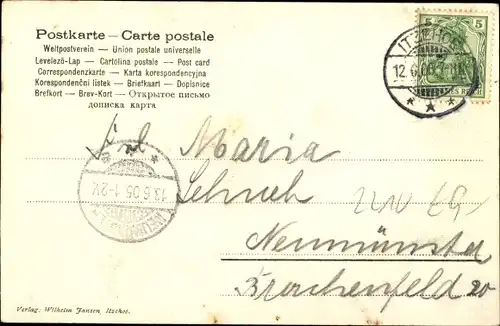 Postkarte – Carte postale
Weltpostverein – Union postale universelle
Levelező-Lap – Cartolina postale – Post card
Correspondenzkarte – Karta korespondencyjna
Korespondenční lístek – Briefkaart – Dopisnice
Brefkort – Brev-Kort – Открытое письмо
дописна карта
5 5
ITZEHOE
12.6.05
ES REICH
13.6.05 1-2V.
Frl Maria
Schuch
Neumünster
Brachenfeld 20
Verlag: Wilhelm Jansen, Itzehoe.